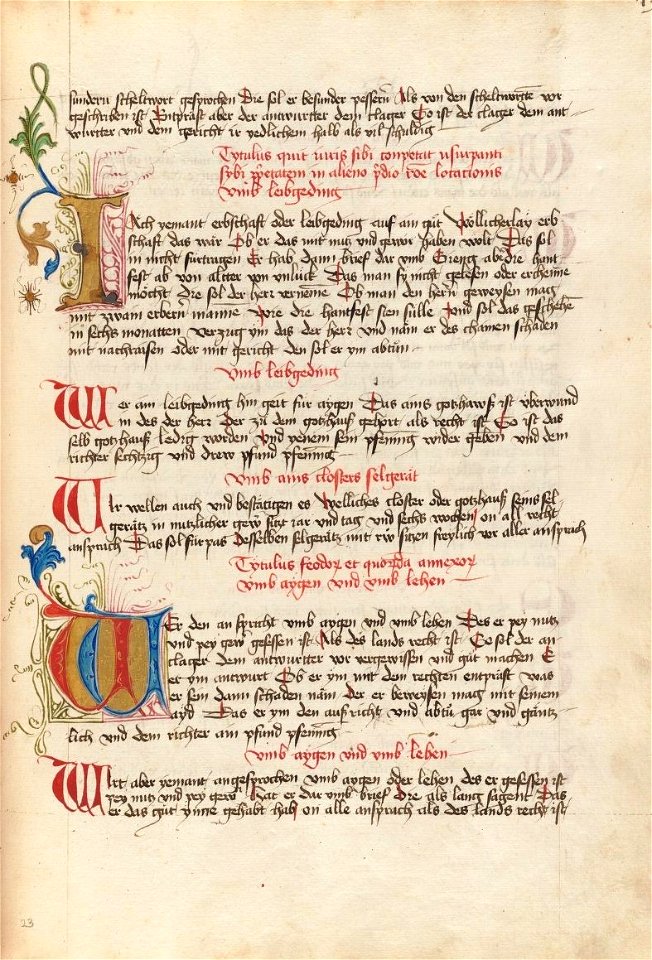 sundern scheltwort gesprochen Die sol er besunder pessern Als von den scheltworten vor
geschriben ist Entprast aber der antwurtter dem clager So ist der clager dem ant
wurtter vnd dem gericht ir yedlichem halb als vil schuldig
Tytulus quit iuris sibi conpetat usurpanti
sibi in alieno locationis
vmb leibgeding
Iach yemant erbschaft oder leibgeding auf ain gut Wöllicherlay erb
schaft das wär Ob er das mit nutz vnd gewer haben wolt Das sol
in nicht fürtragen Er hab dann brief dar vmb Gieng aber die hant
fest ab von altter von vnluck Das man sy nicht gelesen oder
möcht Die sol der herr vernemē Ob man den herrn geweysen mag
mit zwain erbern manne Wie die hantfest sten sülle Vnd sol das geschehē
in sechs monatten verzug ym das der herr vnd nām er des chainen schaden
mit nachraisen oder mit gericht den sol er ym abtūn
vmb leibgeding
Wer ain leibgeding hin geit für aygen Das ains gotzhawß ist überwind
in des der herr Der zu dem gotzhauß gehört als recht ist So ist das
selb gotzhauß ledig worden Vnd yenem sein pfenning wider geben vnd dem
richter sechtzig vnd drew pfund pfenning
vmb ains closters selgerät
Wir wellen auch vnd bestätigen es Welliches closter oder gotzhauß seins sel
gerätz in nutzlicher gewer sitzt iar vnd tag vnd sechs wochen on all recht
ansprach Das sol fürpas Desselben selgerätz mit rw sitzen freylich vor aller ansprach
Tytulus feodor et quorda annexor
vmb aygen vnd vmb lehen
Wer den an spricht vmb aygen vnd vmb lehen Des er pey nutz
vnd pey gewer gesessen ist Als des lands recht ist So sol der an
clager dem antwurtter vor vergewissen vnd gut machen E
er ym antwurt Ob er ym mit dem rechten entprast was
er sein dann schaden nām Der er beweysen mag mit seinem
ayd Das er ym den aufricht vnd abtū gar vnd gäntz
lich vnd dem richter ain pfund pfenning
vmb aygen vnd vmb lehen
Wirt aber yemant angesprochen vmb aygen oder lehen des er gesessen ist
pey nutz vnd pey gewer Hat er dar vmb brief Die als lang sagent Das
er das gut ynne gehabt hab on alle ansprach als des lands recht ist
23